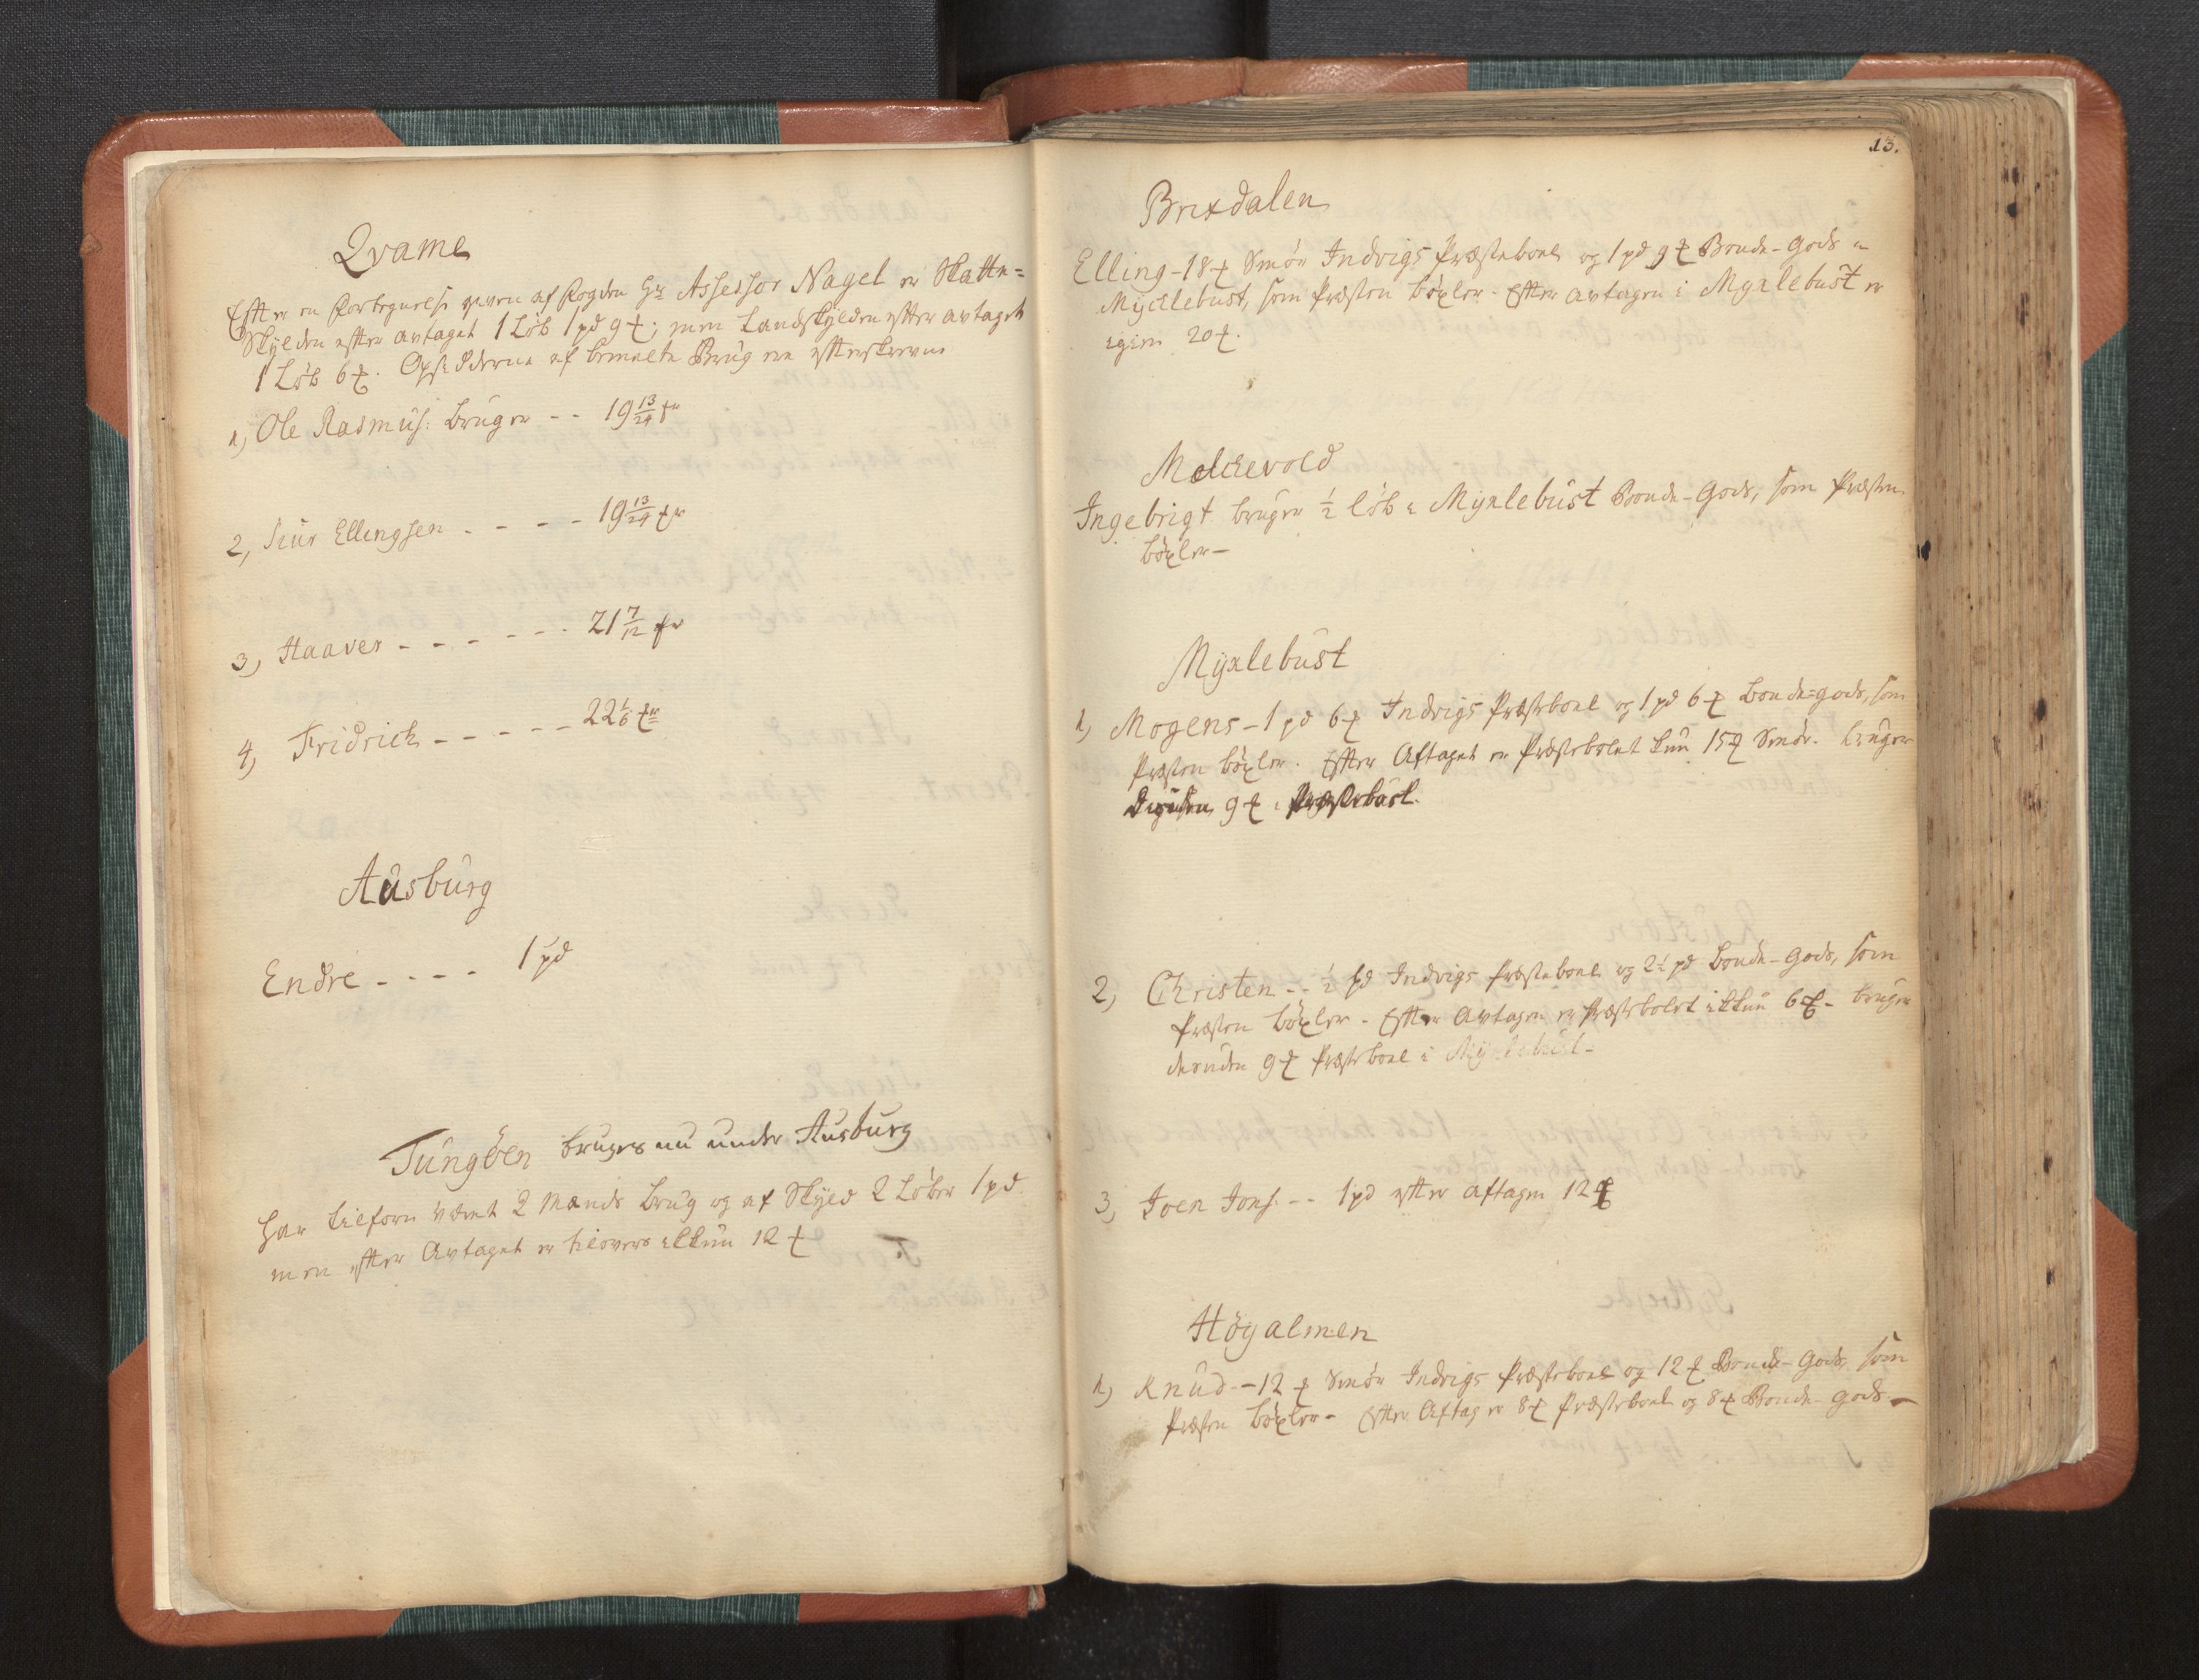 Qvame
Efter en Fortegnelse given af Fogden Hr Assessor Nagel er Skatte=
Skÿlden efter avtaget 1 Löb 1 pd 9 ℔; men Landskÿlden efter avtaget
1 Löb 6 ℔. Opsidderne af bemelte Brug ere efterskrevne
1, Ole Rasmus: bruger - - 19 13/24 ℔r
2, Siur Ellingsen - - - - 19 13/24 ℔r
3, Haaver - - - - - - 21 7/12 ℔r
4, Fridrich - - - - - 22 1/6 ℔r
Ausburg
Endre - - - - 1 pd
Tungöen bruges nu under Ausburg
har tilforn været 2 Mænds brug og af Skÿld 2 Löber 1 pd
men efter Avtaget er tilovers ikkun 12 ℔
13.
Brixdalen
Elling - 18 ℔ Smör Indvigs Præsteboel og 1 pd 9 ℔ Bonde-Gods i
Mÿcklebust, som Præsten böxler. Efter avtagen i Mÿxlebust er
igien 20 ℔.
Melchevold
Ingebrigt bruger 1/2 löb i Mÿxlebust Bonde-Gods, som Præsten
böxler -
Mÿxlebust
1, Mogens - 1 pd 6 ℔ Indvigs Præsteboel og 1 pd 6 ℔ bonde=gods, som
Præsten böxler. Efter Aftaget er Præstebolet kun 15 ℔ Smör. bruger
desuden 9 ℔ i Præsteboel.
2, Christen - - 1/2 pd Indvigs Præsteboel og 2 1/2 pd bonde-Gods, som
Præsten böxler - Efter Avtagen er Præstebolet ikkun 6 ℔ - bruger
desuden 9 ℔ Præsteboel i Mÿxlebust -
3, Joen Jons: - - 1 pd efter aftagen 12 ℔
Höyalmen
1, Knud - - 12 ℔ Smör Indvigs Præsteboel og 12 ℔ Bonde-Gods, som
Præsten böxler - Efter Aftag er 8 ℔ Præsteboel og 8 ℔ Bonde-Gods -